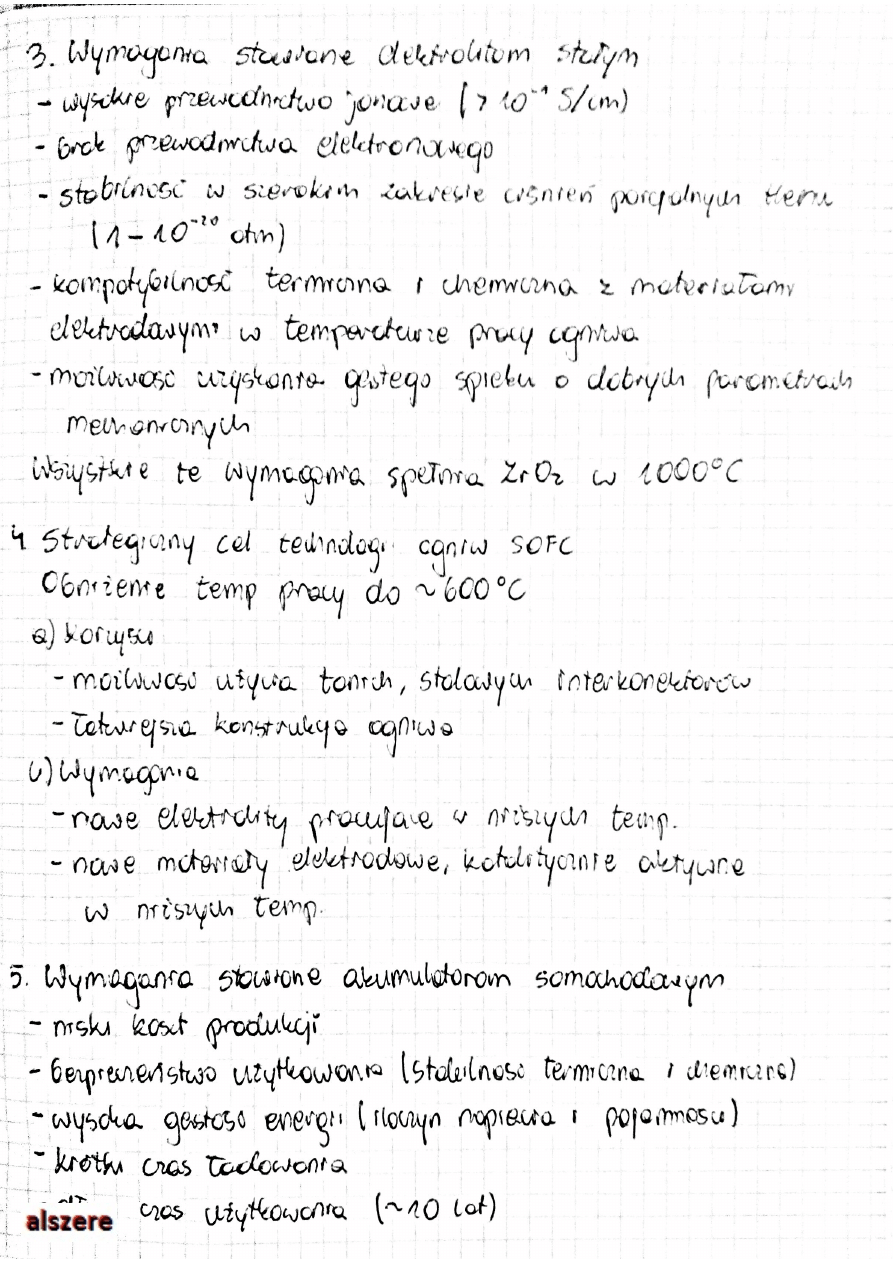 3. Wymagania stawiane elektrolitom stałym
- wysokie przewodnictwo jonowe (> 10⁻¹ S/cm)
- brak przewodnictwa elektronowego
- stabilność w szerokim zakresie ciśnień parcjalnych tlenu
(1 - 10⁻²⁰ atm)
- kompatybilność termiczna i chemiczna z materiałami
elektrodowymi w temperaturze pracy ogniwa
- możliwość uzyskania gęstego spieku o dobrych parametrach
mechanicznych
Wszystkie te wymagania spełnia ZrO₂ w 1000°C
4 Strategiczny cel technologii ogniw SOFC
Obniżenie temp pracy do ~600°C
a) korzyści
- możliwość użycia tanich, stalowych interkonektorów
- łatwiejsza konstrukcja ogniwa
b) Wymagania
- nowe elektrolity pracujące w niższych temp.
- nowe materiały elektrodowe, katalitycznie aktywne
w niższych temp.
5. Wymagania stawione akumulatorom samochodowym
- niski koszt produkcji
- bezpieczeństwo użytkowania (stabilność termiczna i chemiczna)
- wysoka gęstość energii (iloczyn napięcia i pojemności)
- krótki czas ładowania
czas użytkowania (~10 lat)
alszere